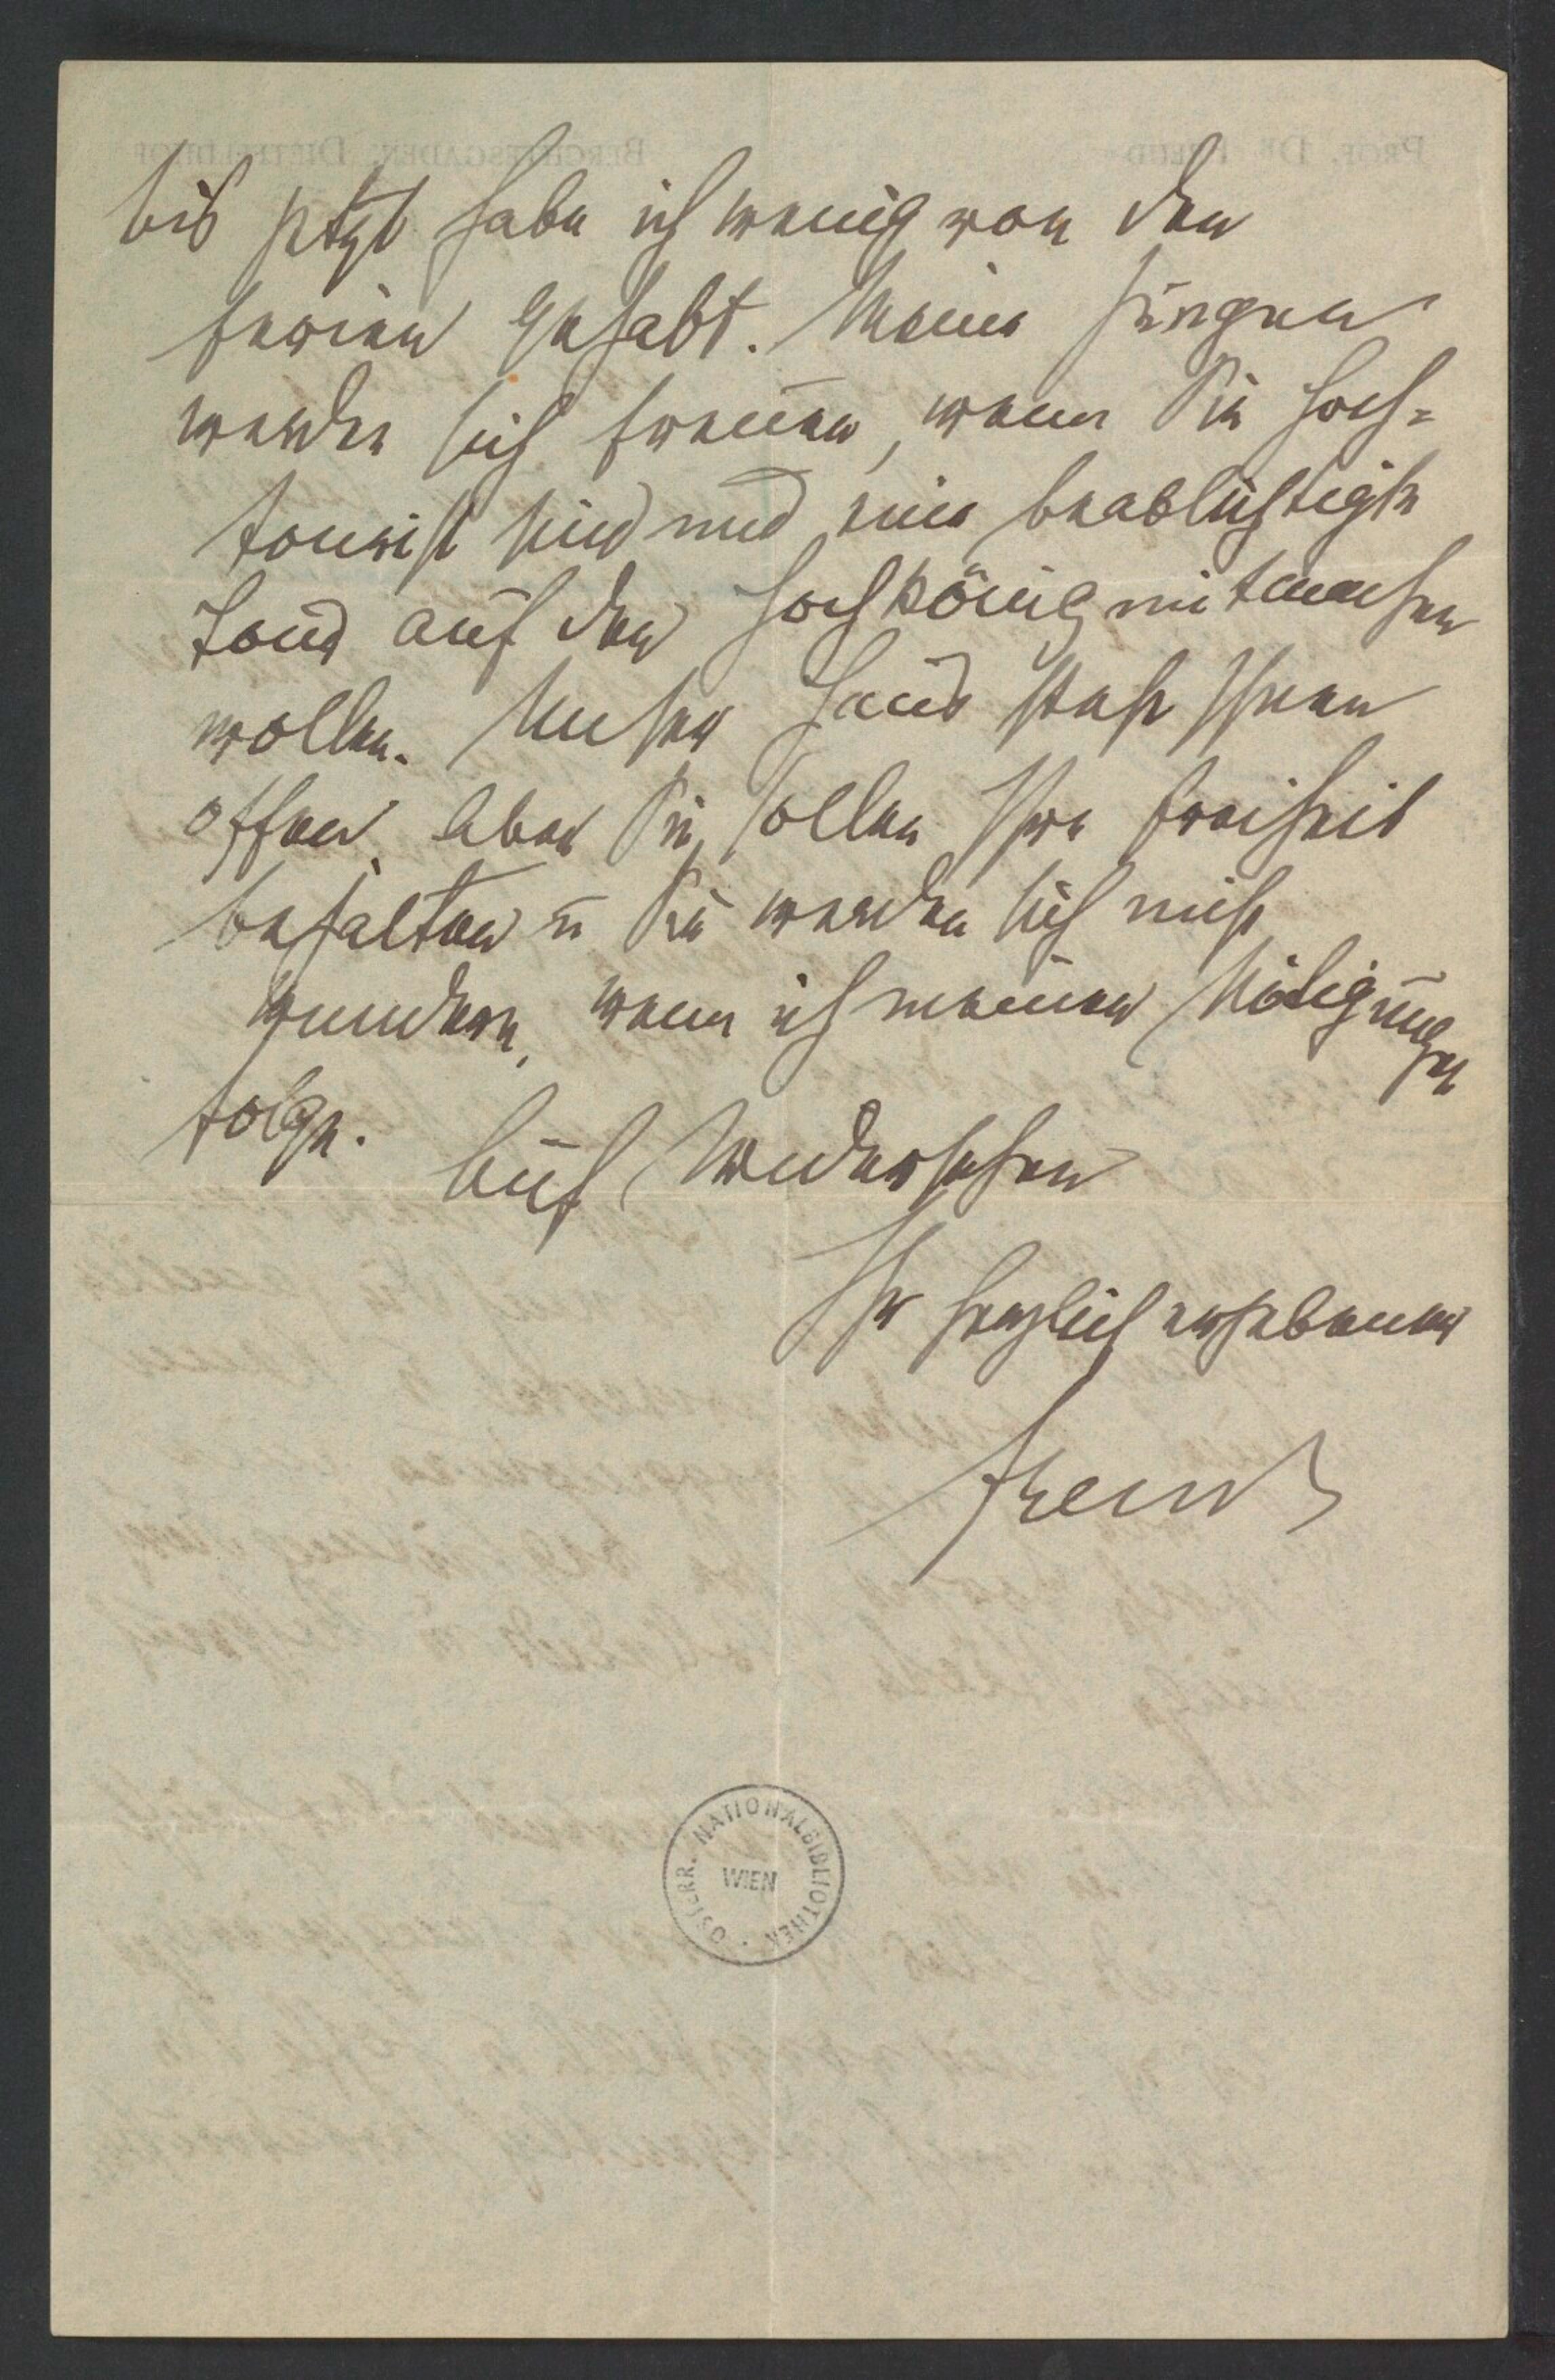 bis jetzt habe ich wenig von den
Ferien gehabt. Meine Jungen
werden sich freuen, wenn Sie Hoch-
tourist sind und eine beabsichtigte
Tour auf den Hochkönig mitmachen
wollen. Unser Haus steht Ihnen
offen. Aber Sie sollen Ihre Freiheit
behalten u Sie werden sich nicht
wundern, wenn ich meinen Nötigungen
folge.
Auf Wiedersehen
Ihr herzlich ergebener
Freud
ÖSTERR. NATIONALBIBLIOTHEK
WIEN